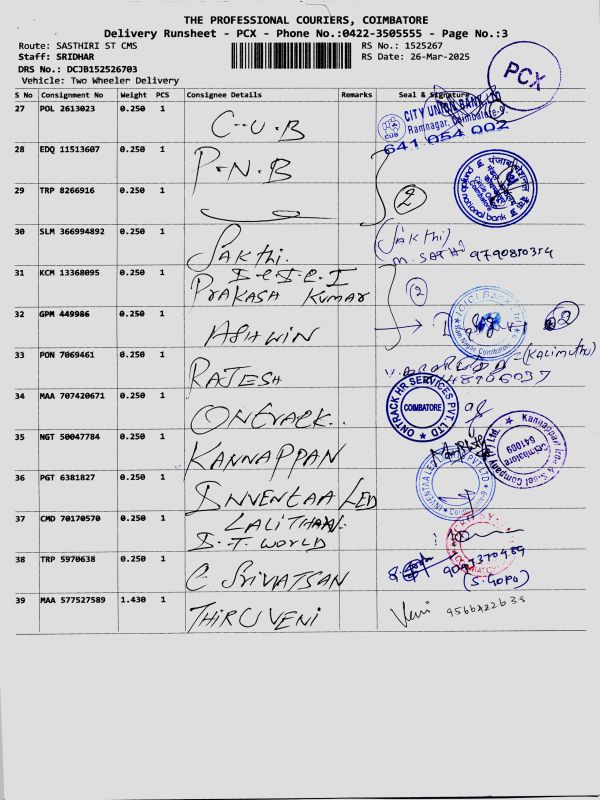 THE PROFESSIONAL COURIERS, COIMBATORE
Delivery Runsheet - PCX - Phone No.:0422-3505555 - Page No.:3
Route: SASTHIRI ST CMS
RS No.: 1525267
Staff: SRIDHAR
RS Date: 26-Mar-2025
DRS No.: DCJB152526703
Vehicle: Two Wheeler Delivery
PCX
S No Consignment No Weight PCS Consignee Details Remarks Seal & Signature
27 POL 2613023 0.250 1 C-U.B
CITY UNION BANK LTD
Ramnagar, Coimbatore-9
CUB
641 054 002
28 EDQ 11513607 0.250 1 P.N.B
29 TRP 8266916 0.250 1
2
national bank
30 SLM 366994892 0.250 1 SAKthi.
(SAKthi)
9790850354
31 KCM 13368095 0.250 1
PrAKASH KUMAR
2
32 GPM 449986 0.250 1 ASHWIN
ICICI Bank Ltd
Coimbatore
2
33 PON 7069461 0.250 1 RAJESH
(KALIMUTHU)
34 MAA 707420671 0.250 1 ONtrack.
ONTRACK HR SERVICES PVT. LTD
COIMBATORE
35 NGT 50047784 0.250 1 KANNAPPAN
Kannappan Iron & Steel Company (P) Ltd.
Coimbatore
641009
36 PGT 6381827 0.250 1 INVENTAA LED
INVENTAA LED
PVT LTD
37 CMD 70170570 0.250 1 LALITHAA
I.T. WORLD
38 TRP 5970638 0.250 1 C SRIVATSAN
(S.GOPU)
39 MAA 577527589 1.430 1 THIRUVENI
Veni